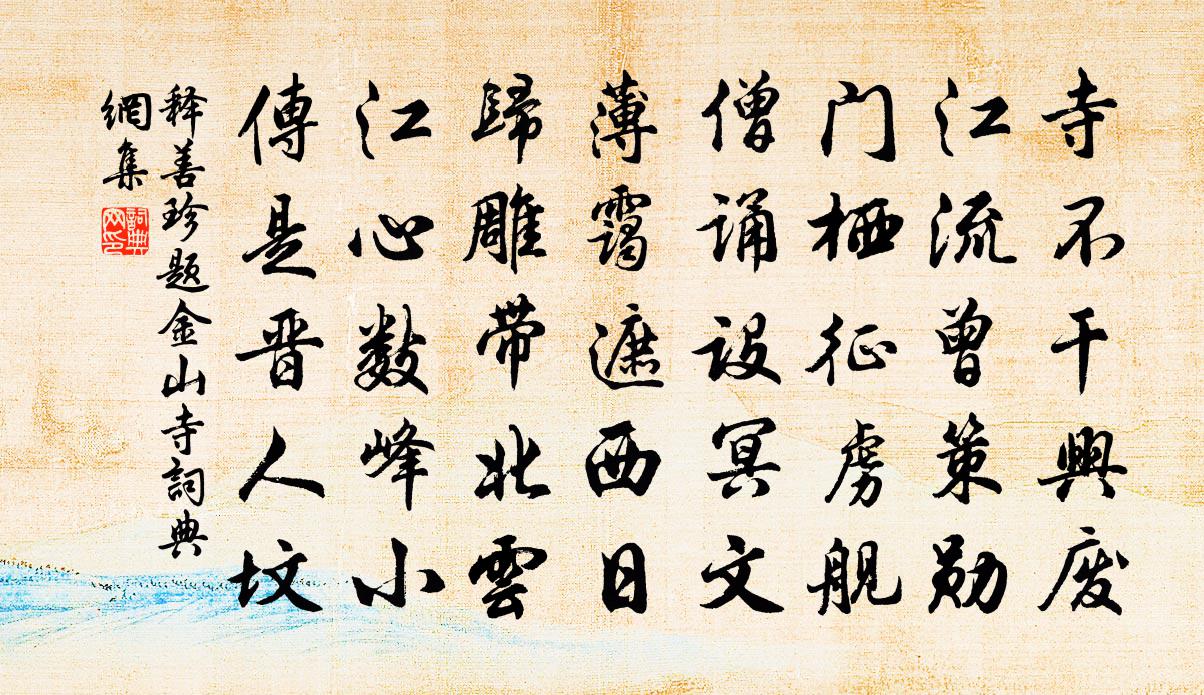 寺不干興废
江流曾策勋
门栖征虏舰
僧诵设冥文
薄霭遮西日
歸雕带北雲
江心数峰小
傳是晋人坟
释善珍题金山寺詞典
網集
詞典
网印